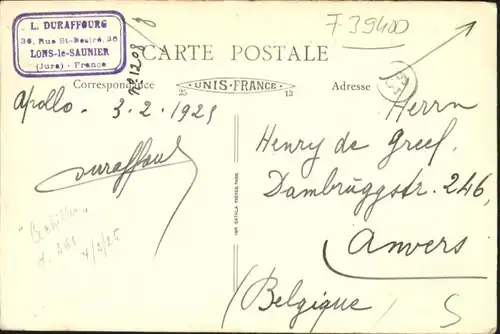 L. DURAFFOURG
36, Rue St-Désiré, 36
LONS-le-SAUNIER
(Jura) - France
F 39400
CARTE POSTALE
Correspondance
25 UNIS-FRANCE 13
Adresse
No 1208
Apollo. 3-2-1925
Duraffourg
4/2/25
IMP. CATALA FRÈRES, PARIS
Herrn
Henry de Greef.
Dambruggstr. 246,
Anvers
(Belgique)
S